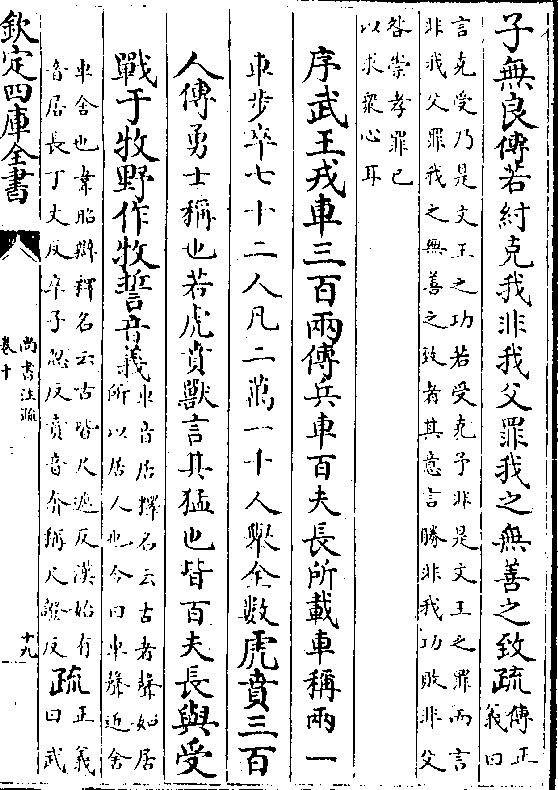 子無良傳若紂克我非我父罪我之無善之致疏傳正
義曰
言克受乃是文王之功若受克予非是文王之罪而言
非我父罪我之無善之致者其意言勝非我功敗非父
咎崇孝罪己
以求衆心耳
序武王戎車三百兩傳兵車百夫長所載車稱兩一
車步卒七十二人凡二萬一千人舉全數虎賁三百
人傳勇士稱也若虎賁獸言其猛也皆百夫長與受
戰于牧野作牧誓音義車音居釋名云古者聲如居
所以居人也今曰車聲近舍
車舍也韋昭辯釋名云古皆尺遮反漢始有
音居長丁丈反卒子忽反賁音奔稱尺證反疏正義
曰武
欽定四庫全書
尚書注疏
卷十
十九